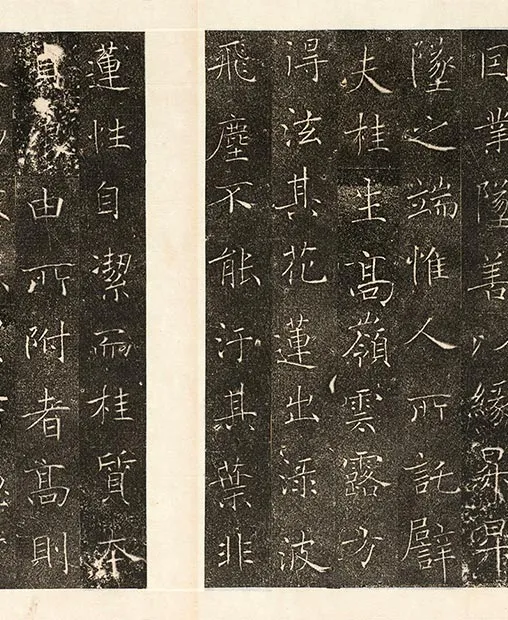 因業墜善以緣昇昇
墜之端惟人所託譬
夫桂生高嶺雲露方
得泫其花蓮出淥波
飛塵不能汙其葉非
蓮性自潔而桂質本
貞良由所附者高則